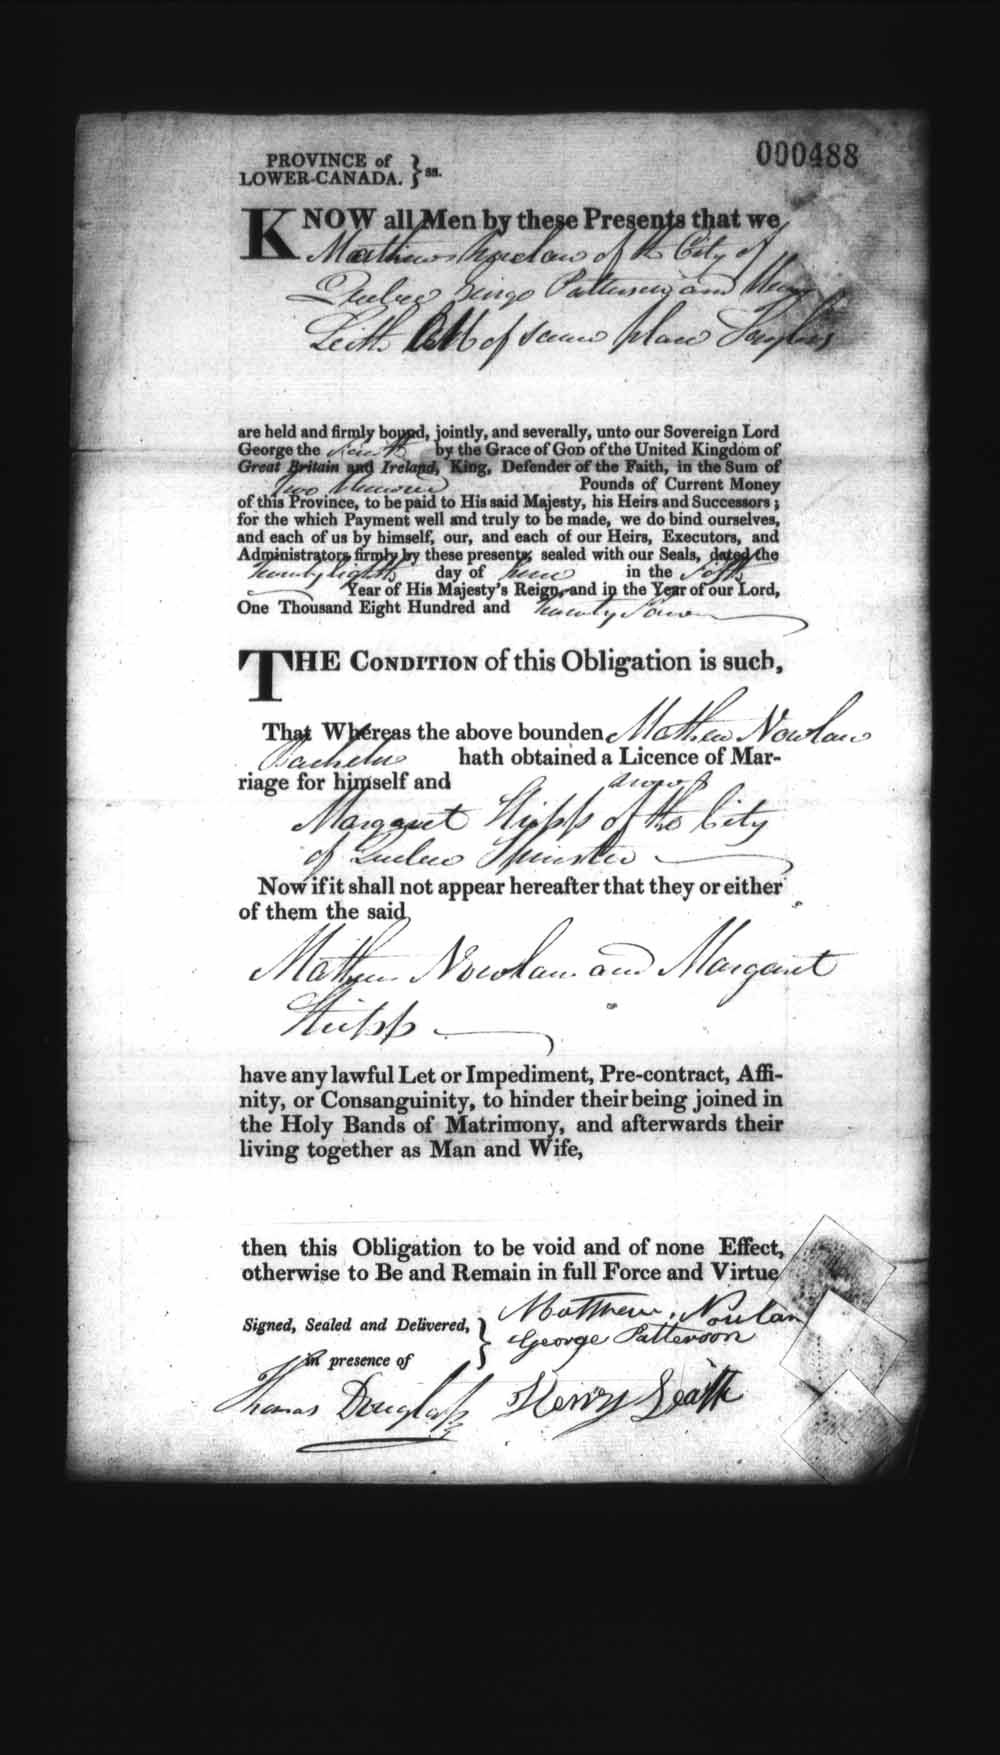 000488
PROVINCE of
LOWER-CANADA. } ss.
KNOW all Men by these Presents that we
Mathew Nowlan of the City of
Quebec George Patterson and Henry
Leith All of same place
are held and firmly bound, jointly, and severally, unto our Sovereign Lord
George the fourth by the Grace of GOD of the United Kingdom of
Great Britain and Ireland, King, Defender of the Faith, in the Sum of
Two Hundred Pounds of Current Money
of this Province, to be paid to His said Majesty, his Heirs and Successors;
for the which Payment well and truly to be made, we do bind ourselves,
and each of us by himself, our, and each of our Heirs, Executors, and
Administrators firmly by these presents; sealed with our Seals, dated the
twenty eighth day of June in the fifth
Year of His Majesty's Reign, and in the Year of our Lord,
One Thousand Eight Hundred and twenty four
THE CONDITION of this Obligation is such,
That Whereas the above bounden Mathew Nowlan
Bachelor hath obtained a Licence of Mar-
riage for himself and
Margaret Stipp of the City
of Quebec Spinster
Now if it shall not appear hereafter that they or either
of them the said
Mathew Nowlan and Margaret
Stipp
have any lawful Let or Impediment, Pre-contract, Affi-
nity, or Consanguinity, to hinder their being joined in
the Holy Bands of Matrimony, and afterwards their
living together as Man and Wife,
then this Obligation to be void and of none Effect,
otherwise to Be and Remain in full Force and Virtue
Signed, Sealed and Delivered, }
in presence of
Matthew Nowlan
George Patterson
Thomas Douglass
Henry Leith